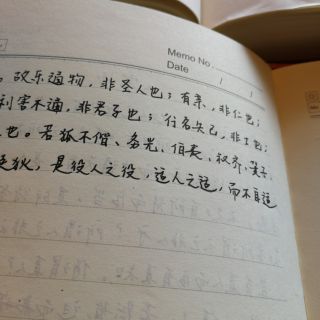 Memo No.
Date / /
。故乐通物，非圣人也；有亲，非仁也；
利害不通，非君子也；行名失己，非士也；
也。若狐不偕、务光、伯夷、叔齐、箕子、
狄，是役人之役，适人之适，而不自适